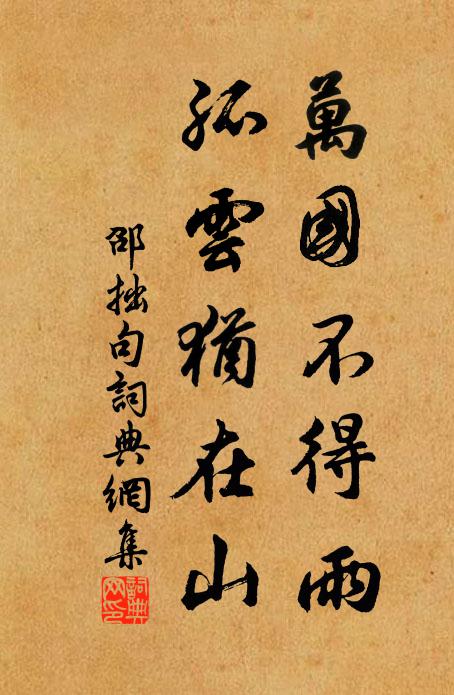 萬國不得雨
孤雲猶在山
邵拙句詞典網集
詞典网印